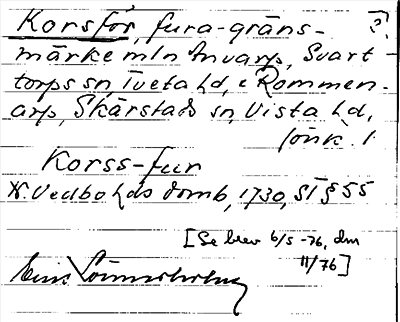 Korsför, fura-gräns- ?
märke mln Anvarp, Svart-
torps sn, Tveta hd, o Rommen-
arp, Skärstads sn, Vista hd,
Jönk. l.
Korss-fur
N. Vedbo hds domb, 1730, ST § 55
[Se brev 6/5 -76, dnr
11/76]